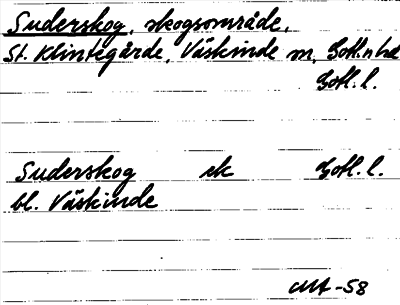 Suderskog, skogsområde,
St. Klintegårde, Väskinde sn, Gotl. n hd
Gotl. l.
Suderskog ek Gotl. l.
bl. Väskinde
-58